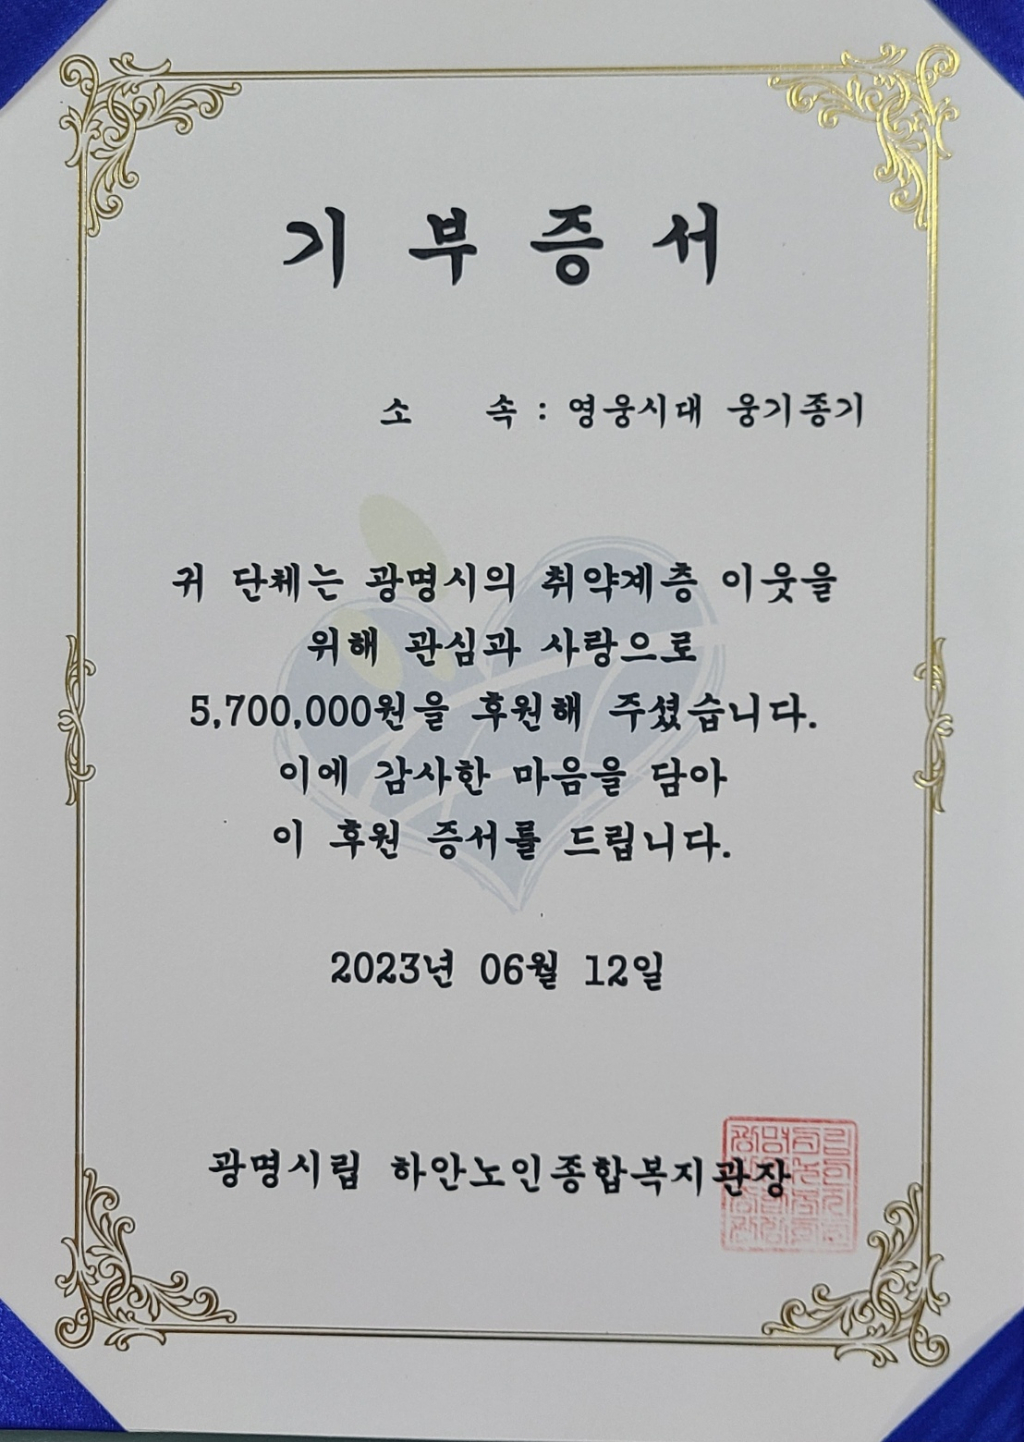 기 부 증 서
소 속 : 영웅시대 웅기종기
귀 단체는 광명시의 취약계층 이웃을
위해 관심과 사랑으로
5,700,000원을 후원해 주셨습니다.
이에 감사한 마음을 담아
이 후원 증서를 드립니다.
2023년 06월 12일
광명시립 하안노인종합복지관장